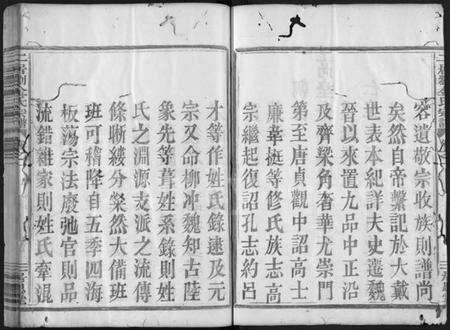 容遺敬宗收族則譜尚
矣然自帝繫記於大戴
世表本紀詳夫史遷魏
晉以來置九品中正沿
及齊梁角奢華尤崇門
第至唐貞觀中詔高士
廉葦挺等修氏族志高
宗繼起復詔孔志約呂
才等作姓氏錄逮及元
宗又命柳沖魏知古陸
象先等葺姓系錄則姓
氏之淵源支派之流傳
條晰縷分粲然大備班
班可稽降自五季四海
板蕩宗法廢弛官則品
流錯雜家則姓氏牽混